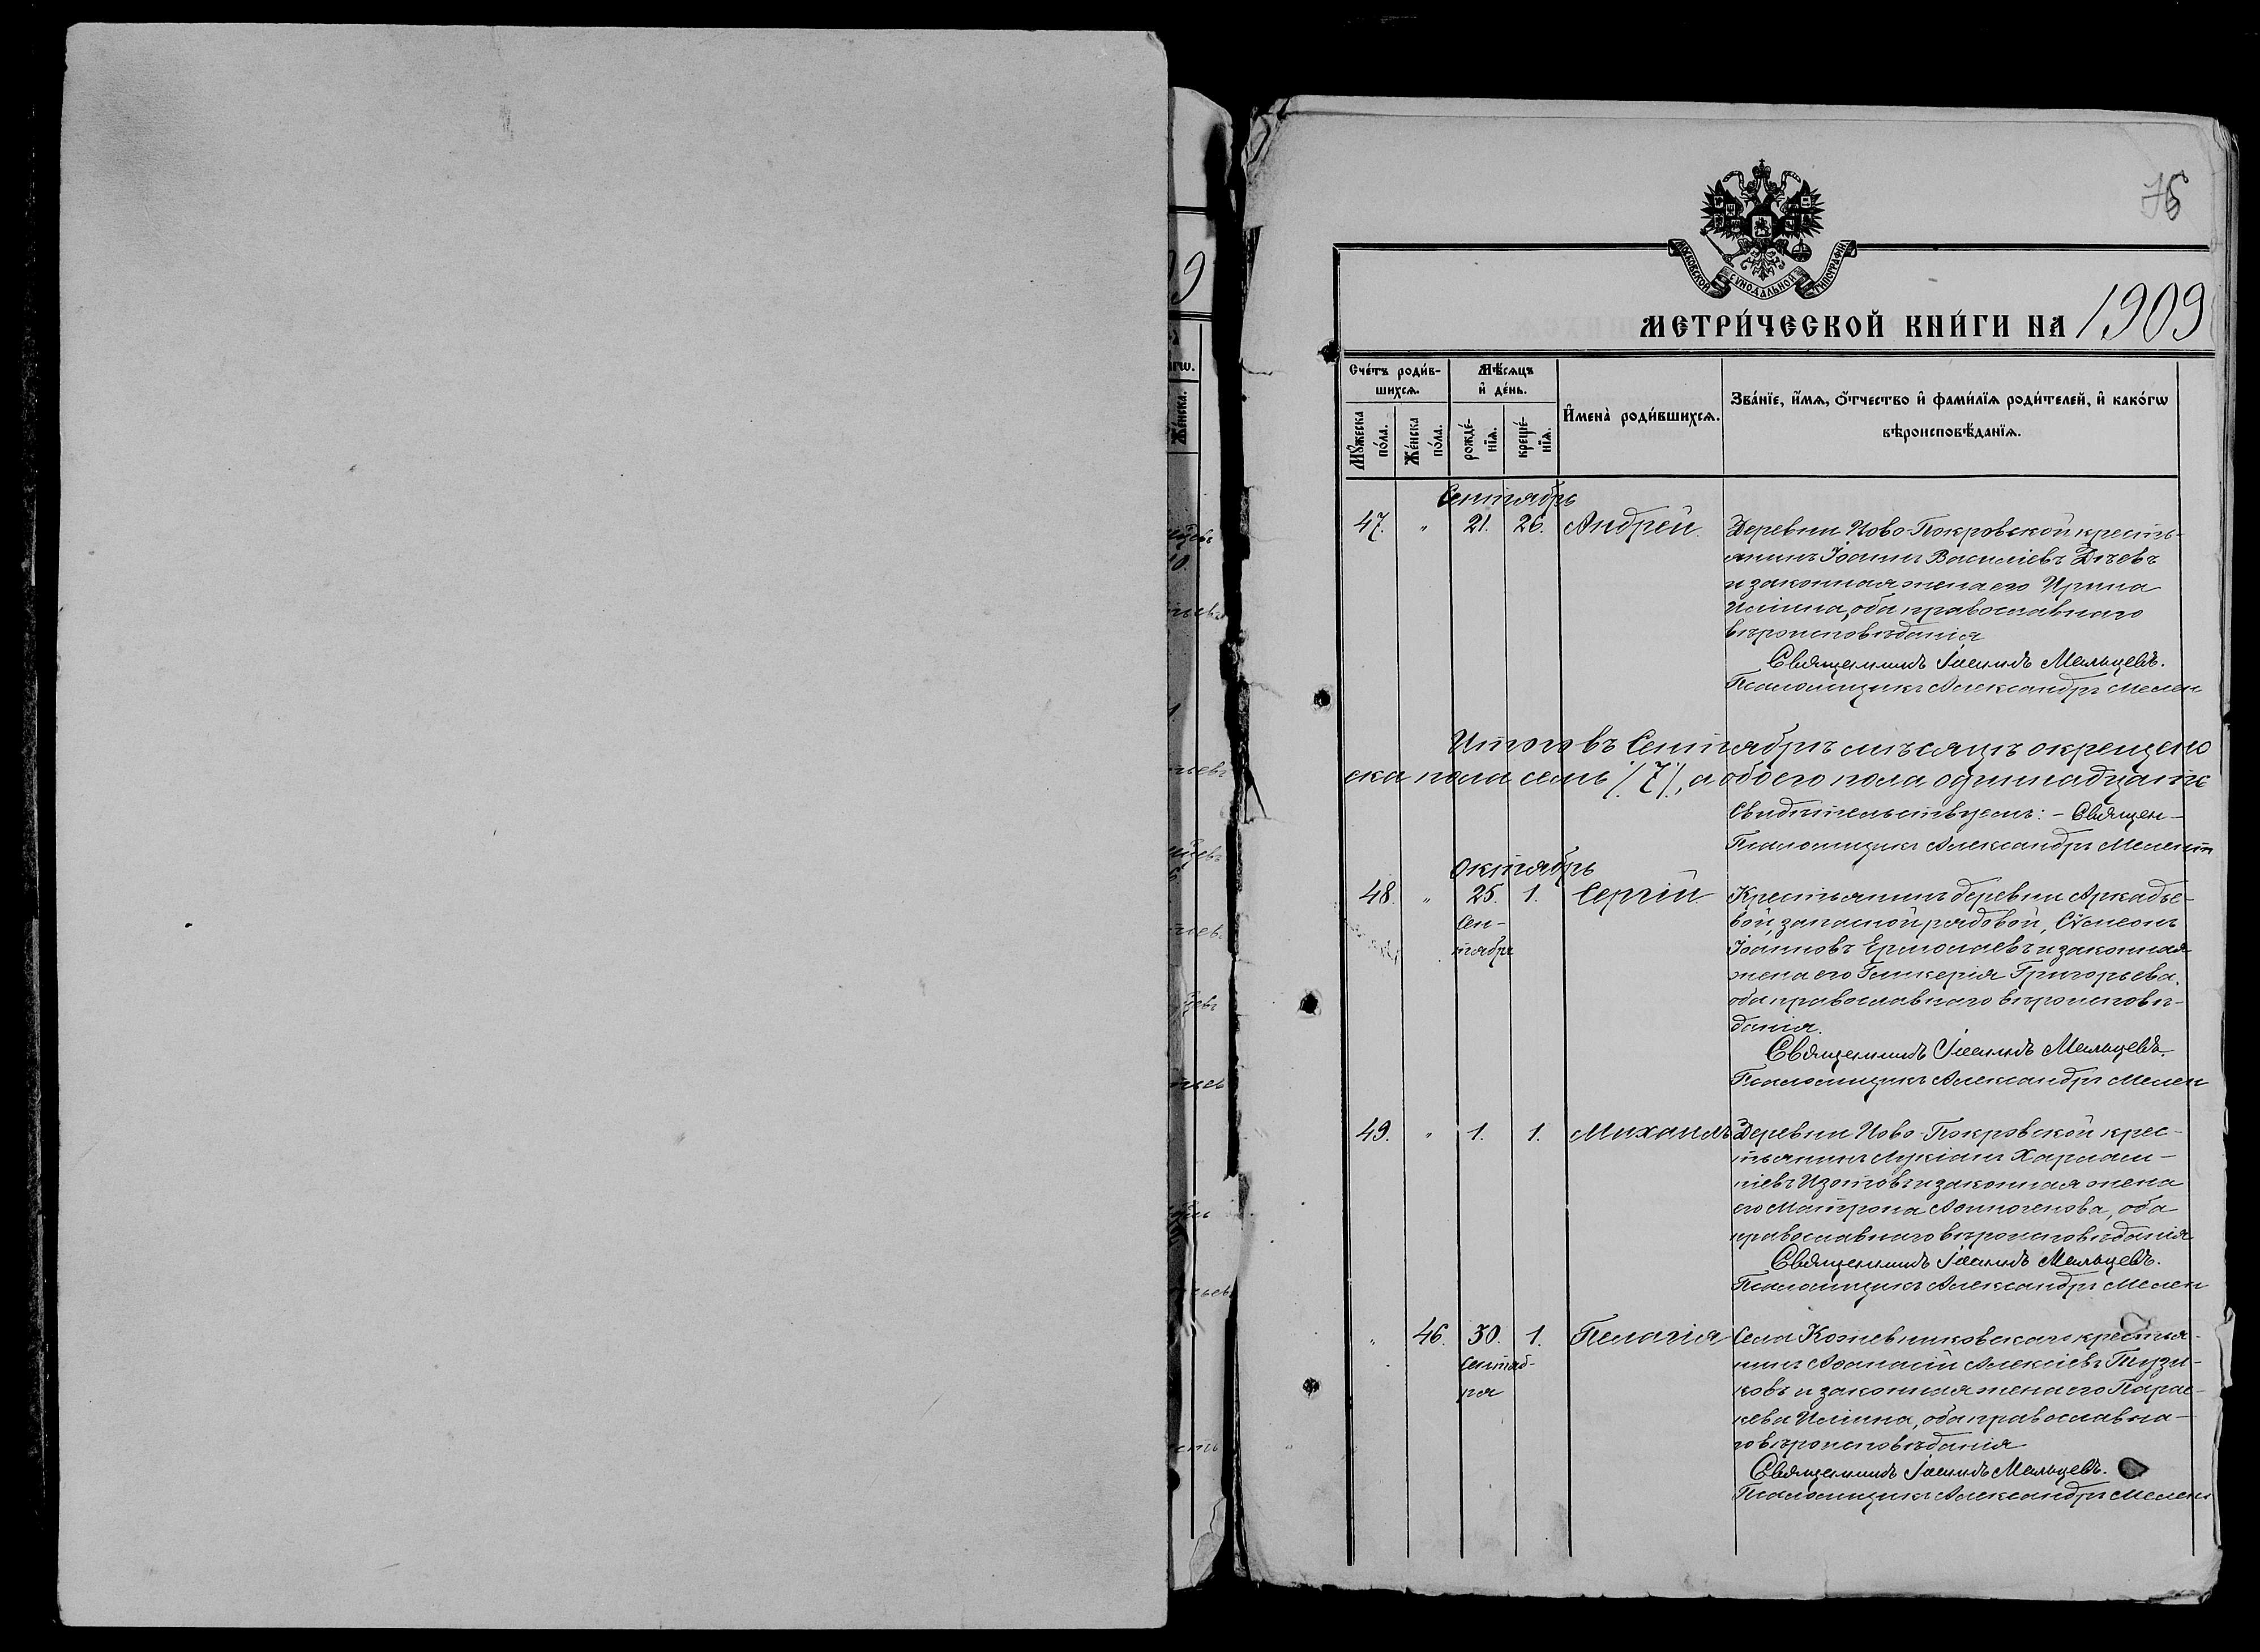 76
МОСКОВСКОЙ СѴНОДАЛЬНОЙ ТИПОГРАФІИ
МЕТРИ́ЧЕСКОЙ КНИ́ГИ НА 1909
Сче́тъ роди́в-
шихсѧ.
Мѣ́сѧцъ
и҆ де́нь.
И҆мена̀ роди́вшихсѧ.
Зва́нїе, и҆́мѧ, ѻ҆́тчество и҆ фами́лїѧ роди́телей, и҆ како́гѡ
вѣроисповѣ́данїѧ.
Мꙋ́жеска
по́ла.
Же́нска
по́ла.
рожде́-
нїѧ.
креще́-
нїѧ.
Сентябрь
47. " 21. 26. Андрей. Деревни Ново-Покровской кресть-
янинъ Іоаннъ Василіевъ
и законная жена его Ирина
Иліина, оба православнаго
вѣроисповѣданія
Священникъ Іоаннъ Мальцевъ.
Псаломщикъ Александръ Мелен
Итого въ Сентябрѣ мѣсяцѣ окрещено
ска пола семь /7/, а обоего пола одиннадцать
Свидѣтельствуемъ: - Священ-
Псаломщикъ Александръ Мелент
Октябрь
48. " 25. 1. Сергій Крестьянинъ деревни Аркадье-
Сен- вой, запасной рядовой, Сѵмеонъ
тября Іоанновъ Ермолаевъ и законная
жена его Гликерія Григорьева,
оба православнаго вѣроисповѣ-
данія.
Священникъ Іоаннъ Мальцевъ.
Псаломщикъ Александръ Мелен
49. " 1. 1. Михаилъ Деревни Ново-Покровской крес-
тьянинъ Лукіанъ Харлам-
піевъ Изотовъ и законная жена
его Матрона Аѳиногенова, оба
православнаго вѣроисповѣданія
Священникъ Іоаннъ Мальцевъ.
Псаломщикъ Александръ Мелен
" 46. 30. 1. Пелагія Села Кожевниковскаго крестья-
Сентяб- нинъ Аѳанасій Алексіевъ Пузи-
ря ковъ и законная жена его Парас-
кева Иліина, оба православна-
го вѣроисповѣданія
Священникъ Іоаннъ Мальцевъ.
Псаломщикъ Александръ Мелен